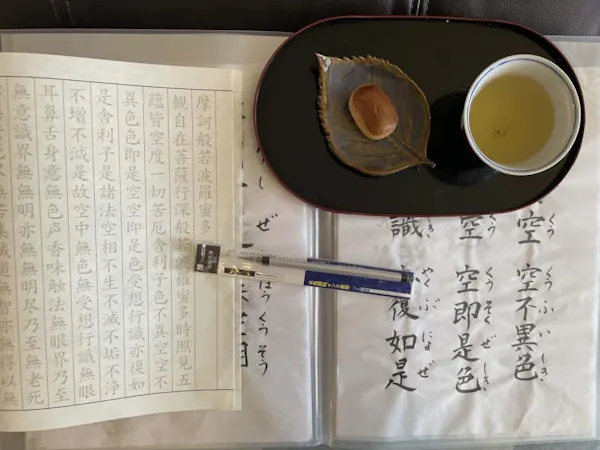 空 空不異色
くう くうふいしき
空 空即是色
くう くうそくぜしき
識 復如是
しき やくぶにょぜ
ぜ
ほうくうそう
摩訶般若波羅蜜多
観自在菩薩行深般若波羅蜜多時照見五
蘊皆空度一切苦厄舎利子色不異空空不
異色色即是空空即是色受想行識亦復如
是舎利子是諸法空相不生不滅不垢不浄
不増不減是故空中無色無受想行識無眼
耳鼻舌身意無色声香味触法無眼界乃至
無意識界無無明亦無無明尽乃至無老死
無苦集滅道無智亦無得以無